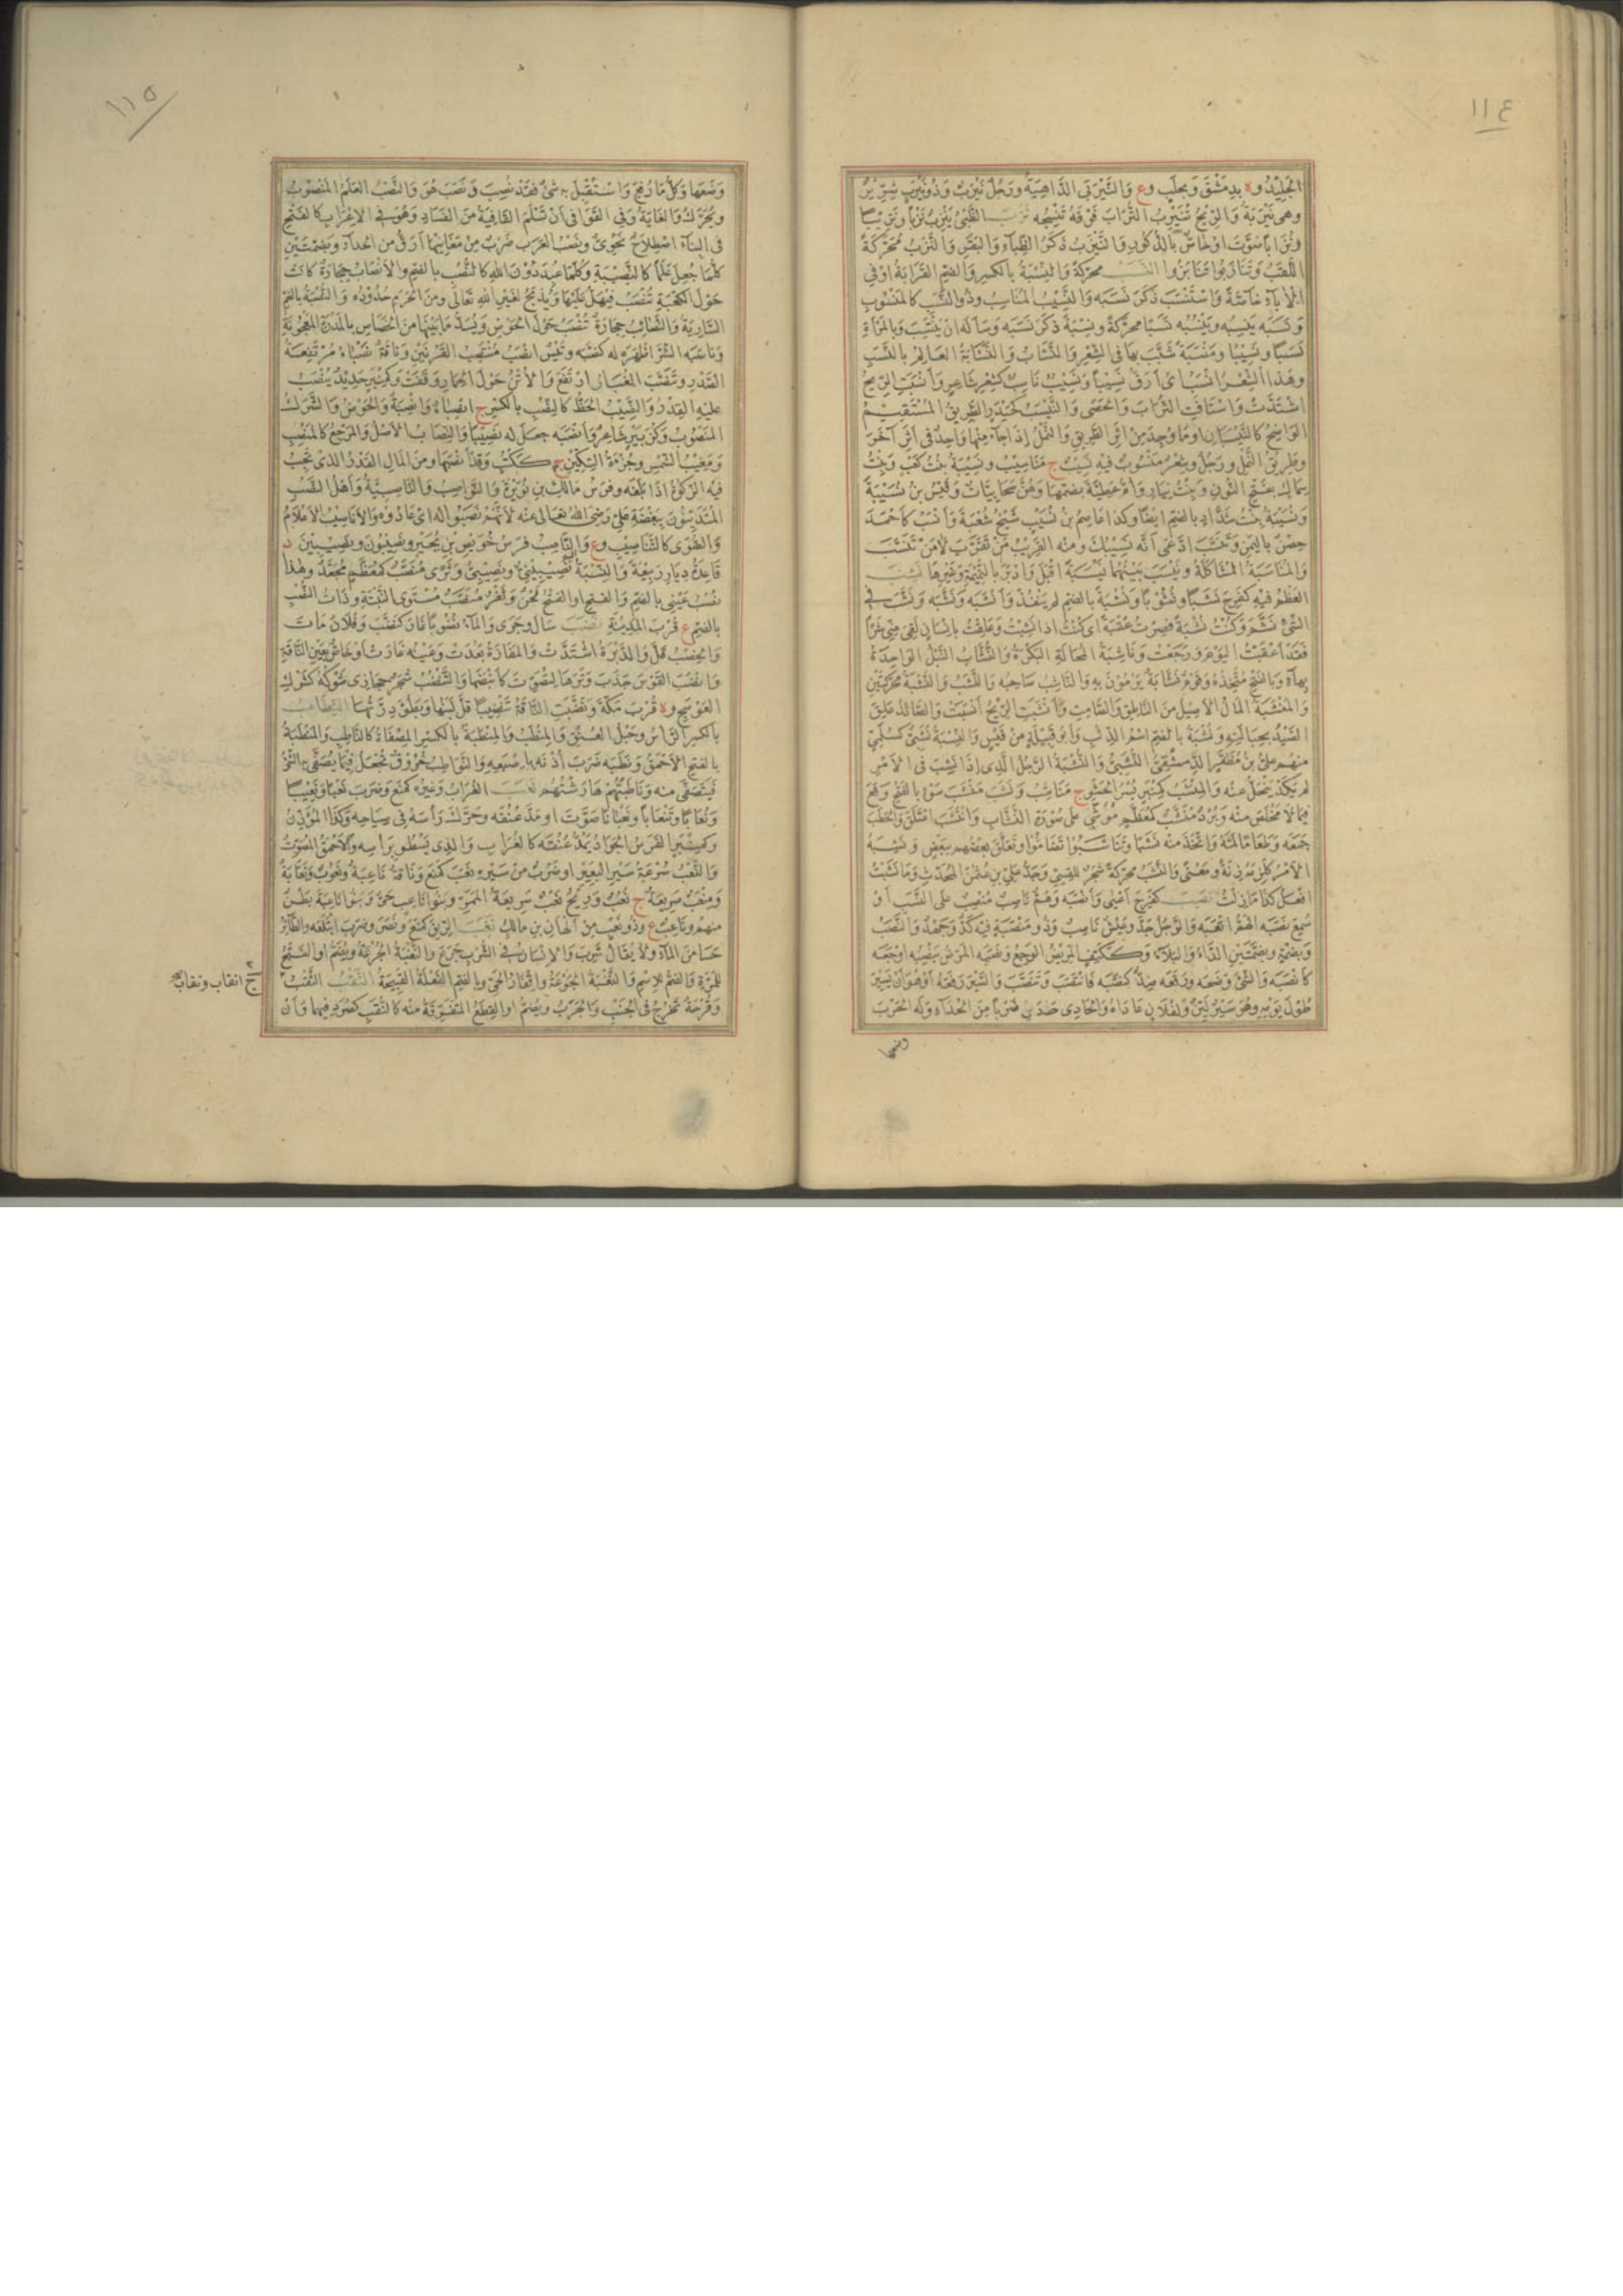 ١١٤
الجليد و ة بدمشق وبحلب وع والنيرب الداهية ورجل نيرب وذو نيرب شرير
وهى نيربة والريح تنيرب التراب فوقه تنسجه نزب الظبى ينزب نزبا ونزيبا
ونزابا صوت او خاص بالذكور والنيزب ذكر الظباء والبقر والنزب محركة
اللقب وتنازبوا تنابزوا النسب محركة والنسبة بالكسر والضم القرابة او فى
الآباء خاصة واستنسب ذكر نسبه والنسيب المناسب وذو النسب كالمنسوب
ونسبه ينسبه وينسبه نسبا محركة ونسبة ذكر نسبه وسأله ان ينتسب وبالمرأة
نسبا ونسيبا ومنسبة شبب بها فى الشعر والنساب والنسابة العالم بالنسب
وهذا الشعر انسب اى ارق نسيبا ونسيب ناسب كشعر شاعر وانسبت الريح
اشتدت واستافت التراب والحصى والنيسب كحيدر الطريق المستقيم
الواضح كالنيسبان او ما وجد من اثر الطريق والنمل اذا جاء منها واحد فى اثر آخر
وطريق النمل ورجل وشعر منسوب فيه نسيب ج مناسيب ونسيبة بنت كعب وبنت
سماك بفتح النون وبنت نيار وام عطية بضمها وهن صحابيات وقيس بن نسيبة
ونسيبة بنت شداد بالضم ايضا وكذا عاصم بن نسيب شيخ شعبة وانسب كاحمد
حصن باليمن وتنسب ادعى انه نسيبك ومنه القريب من تقرب لا من تنسب
والمناسبة المشاكلة ونيسب بينهما نيسبة اقبل وادبر بالنميمة وغيرها نشب
العظم فيه كفرح نشبا ونشوبا ونشبة بالضم لم ينفذ وانشبه ونشبه ونشب فى
الشئ نشم وكنت نشبة فصرت عقبة اى كنت اذا نشبت وعلقت بانسان لقى منى شرا
فقد اعقبت اليوم ورجعت وناشبة المحالة البكرة والنشاب النبل الواحدة
بهاء وبالفتح متخذه وقوم نشابة يرمون به والناشب صاحبه والنشب والنشبة محركتين
والمنشبة المال الاصيل من الناطق والصامت وانشبت الريح انسبت والصائد علق
الصيد بحبالته ونشبة بالضم اسم الذئب وابو قبيلة من قيس والنسبة نشبى كسلمى
منهم على بن مظفر الدمشقى النشبى والنشبة الرجل الذى اذا نشب فى الامر
لم يكد ينحل عنه والمنشب كمنبر بسر الخشو ج مناشب ونشب منشب سوء بالفتح وقع
فيما لا مخلص منه وبرد منشب كمعظم موشى على صورة النشاب وانتشب اعتلق والحطب
جمعه وطعاما لمه واتخذ منه نشبا وتناشبوا تضاموا وتعلق بعضهم ببعض ونشبه
الامر كلزمه زنة ومعنى والنشب محركة شجر للقسى وجد على بن عثمن المحدث وما نشبت
افعل كذا ما زلت نصب كفرح اعيى وانصبه وهم ناصب منصب على النسب او
سمع نصبه الهم اتعبه والرجل جد وعيش ناصب وذو منصبة فيه كد وجهد والنصب
وبضمة وبضمتين الداء والبلاء وككتف المريض الوجع ونصبه المرض ينصبه اوجعه
كانصبه والشئ وضعه ورفعه ضد كنصبه فانتصب وتنصب والسير رفعه او هو ان يسير
طول يومه وهو سير لين ولفلان عاداه والحادى حدا ضربا من الحداء وله الحرب
وضعها
١١٥
وضعها وكل ما رفع واستقبل به شئ فقد نصب ونصب هو والنصب العلم المنصوب
ويحرك والغاية وفى القوافى ان تسلم القافية من الفساد وهو فى الاعراب كالفتح
فى البناء اصطلاح نحوى ونصب العرب ضرب من مغانيها ارق من الحداء وبضمتين
كلما جعل علما كالنصيبة وكلما عبد من دون الله كالنصب بالضم والانصاب حجارة كانت
حول الكعبة تنصب فيهل عليها ويذبح لغير الله تعالى ومن الحرم حدوده والنصبة بالضم
السارية والنصائب حجارة تنصب حول الحوض ويسد ما بينها من الخصاص بالمدرة المعجونة
وناصبه الشر اظهره له كنصبه وتيس انصب منتصب القرنين وناقة نصباء مرتفعة
الصدر وتنصب الغبار ارتفع والاتن حول الحمار وقفت وكمنبر حديد ينصب
عليه القدر والنصيب الحظ كالنصب بالكسر ج انصباء وانصبة والحوض والشرك
المنصوب وكزبير شاعر وانصبه جعل له نصيبا والنصاب الاصل والمرجع كالمنصب
ومغيب الشمس وجزءة السكين ج ككتب وقد انصبها ومن المال القدر الذى تجب
فيه الزكوة اذا بلغه وفرس مالك بن نويرة والنواصب والناصبية واهل النصب
المتدينون ببغضة على رضى الله تعالى عنه لانهم نصبوا له اى عادوه والاناصيب الاعلام
والصوى كالتناصيب وع والناصب فرس حويص بن بجير ونصيبون ونصيبين د
قاعدة ديار ربيعة والنسبة نصيبينى ونصيبى وثرى منصب كمعظم مجعد وهذا
نصب عينى بالضم والفتح او الفتح لحن وثغر منصب مستوى النبتة وذات النصب
بالضم ع قرب المدينة نضب سال وجرى والماء نضوبا غار كنضب وفلان مات
والخصب قل والدبرة اشتدت والمفازة بعدت وعينه غارت او خاص بعين الناقة
وانضب القوس جذب وترها لتصوت كانبضها والتنضب شجر حجازى شوكه كشوك
العوسج و ة قرب مكة ونضبت الناقة تنضيبا قل لبنها وبطؤ درتها النطاب
بالكسر الراس وحبل العنق والمنطب والمنطبة بالكسر المصفاة كالناطب والمنطبة
بالفتح الاحمق ونطبه ضرب اذنه باصبعه والنواطب خروق تجعل فيما يصفى به الشئ
فيتصفى منه وناطبتهم هارشتهم نعب الغراب وغيره كمنع وضرب نعبا ونعيبا
ونعابا وتنعابا ونعبانا صوت او مد عنقه وحرك رأسه فى صياحه وكذا المؤذن
وكمنبر الفرس الجواد يمد عنقه كالغراب والذى يسطو برأسه والاحمق المصوت
والنعب سرعة سير البعير او ضرب من سيره نعب كمنع وناقة ناعبة ونعوب ونعابة
ومنعب سريعة ج نعب وريح نعب سريعة الممر وبنو ناعب حى وبنو ناعبة بطن
منهم وناعب ع وذو نعب من الهان بن مالك نغب الريق كمنع ونصر وضرب ابتلعه والطائر
حسا من الماء ولا يقال شرب والانسان فى الشرب جرع والنغبة الجرعة ويضم او الفتح
للمرة والضم للاسم والنغبة الجوعة واقفار الحى وبالضم الفعلة القبيحة النقب الثقب
ج انقاب ونقاب
وقرحة تخرج فى الجنب والجرب ويضم او القطع المتفرقة منه كالنقب كصرد فيهما وان